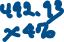 442.93
x4%